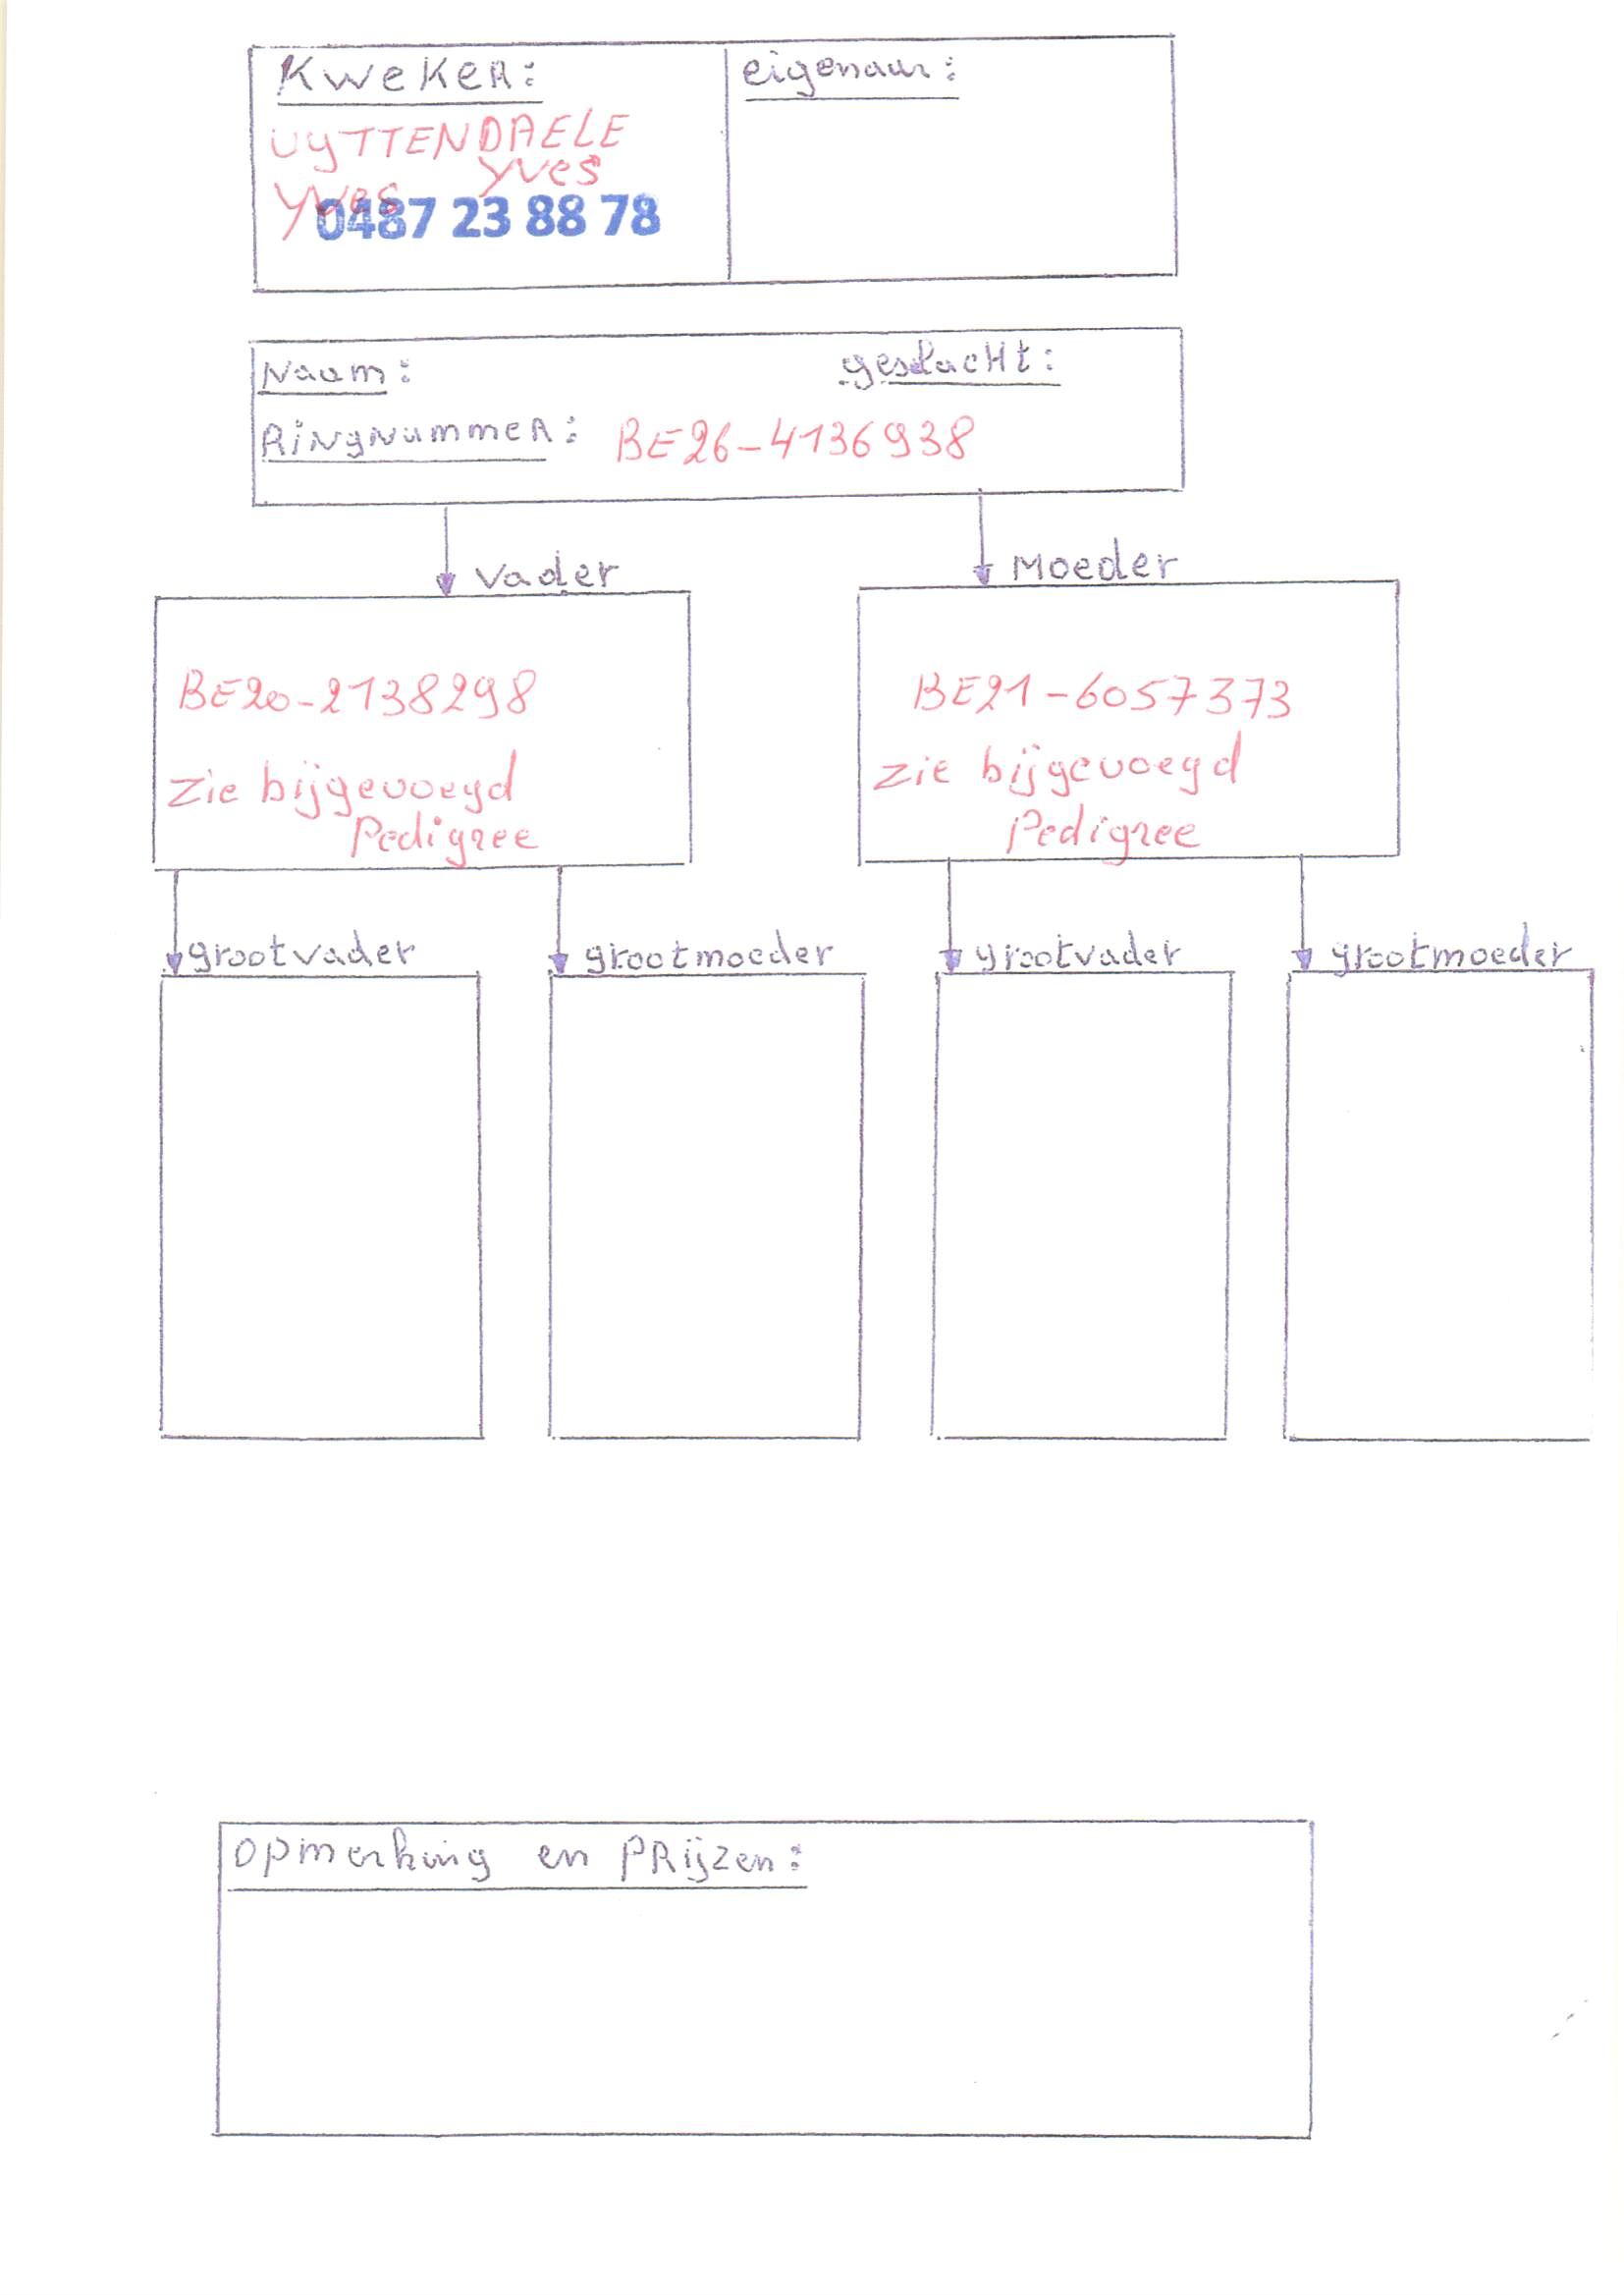 Kweker:
eigenaar:
UYTTENDAELE
Yves
Yves
0487 23 88 78
Naam:
geslacht:
Ringnummer: BE26-4136938
Vader
Moeder
BE20-2138298
Zie bijgevoegd
Pedigree
BE21-6057373
Zie bijgevoegd
Pedigree
grootvader
grootmoeder
grootvader
grootmoeder
opmerking en PRijzen: